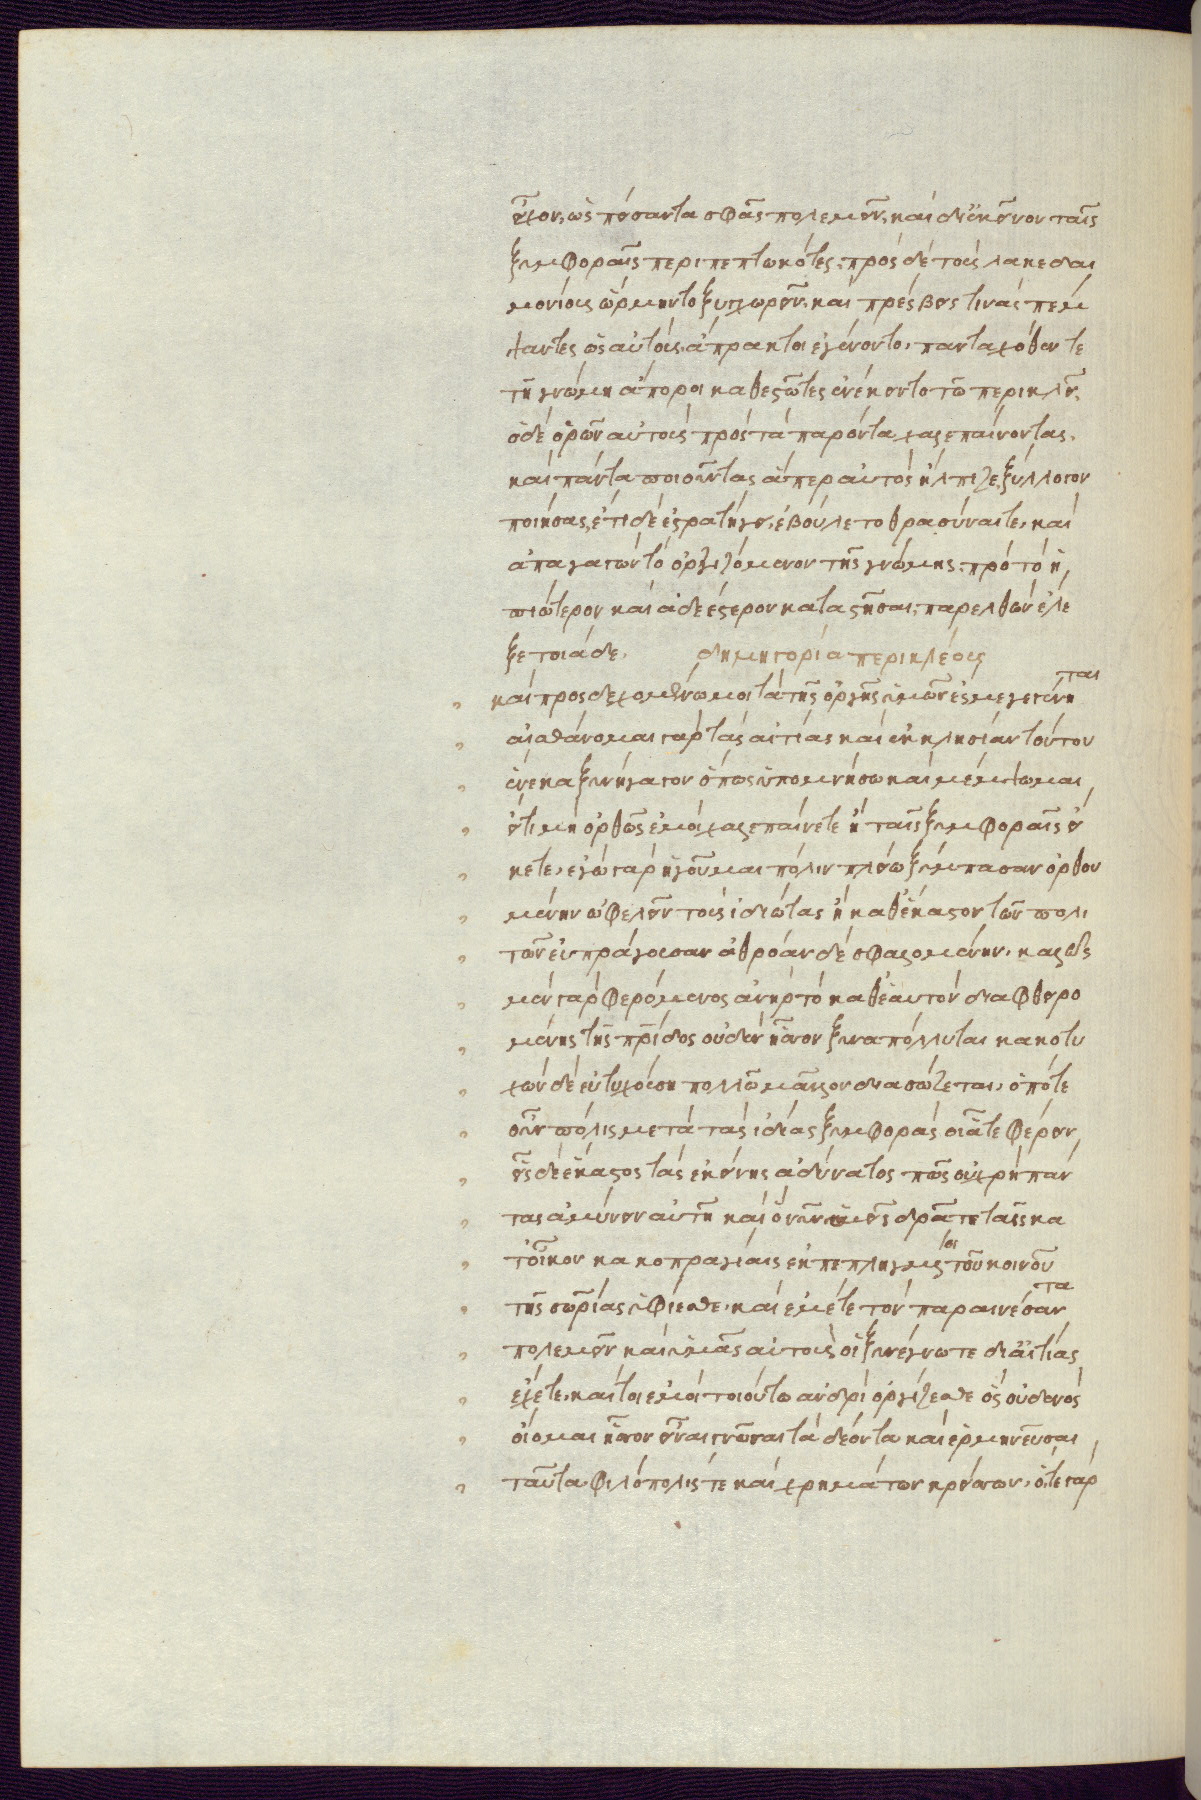 εἶχον, ὡς πείσαντα σφᾶς πολεμεῖν, καὶ δι' ἐκεῖνον ταῖς
ξυμφοραῖς περιπεπτωκότες, πρὸς δὲ τοὺς λακεδαι
μονίους ὥρμηντο ξυγχωρεῖν. καὶ πρέσβεις τινὰς πέμ
ψαντες ὡς αὐτοὺς, ἄπρακτοι ἐγένοντο, πανταχόθεν τε
τῆ γνώμη ἄποροι καθεστῶτες ἐνέκειντο τῶ περικλεῖ.
ὁ δὲ ὁρῶν αὐτοὺς πρὸς τὰ παρόντα χαλεπαίνοντας,
καὶ πάντα ποιοῦντας ἅπερ αὐτὸς ἤλπιζε, ξύλλογον
ποιήσας, ἔτι δὲ ἐστρατήγει, ἐβούλετο θρασῦναί τε, καὶ
ἀπαγαγὼν τὸ ὀργιζόμενον τῆς γνώμης, πρὸς τὸ ἠ
πιώτερον καὶ ἀδεέστερον καταστῆσαι, παρελθὼν ἔλε
ξε τοιάδε. δημηγορία περικλέους
καὶ προσδεχομένω μοι τὰ τῆς ὀργῆς ὑμῶν ἔς με γεγένηται
αἰσθάνομαι γὰρ τὰς αἰτίας καὶ ἐκκλησίαν τούτου
ἕνεκα ξυνήγαγον ὅπως ὑπομνήσω καὶ μέμψωμαι
εἴ τι μὴ ὀρθῶς ἐμοὶ χαλεπαίνετε ἢ ταῖς ξυμφοραῖς εἴ
κετε, ἐγὼ γὰρ ἡγοῦμαι πόλιν πλείω ξύμπασαν ὀρθου
μένην ὠφελεῖν τοὺς ἰδιώτας ἢ καθ' ἕκαστον τῶν πολι
τῶν εὐπραγοῦσαν ἀθρόαν δὲ σφαλλομένην. καλῶς
μὲν γὰρ φερόμενος ἀνὴρ τὸ καθ' ἑαυτὸν διαφθειρο
μένης τῆς πρίδος οὐδὲν ἧσσον ξυναπόλλυται κακοτυ
χῶν δὲ εὐτυχούση πολλῶ μᾶλλον διασώζεται, ὁπότε
οὖν πόλις μὲν τὰς ἰδίας ξυμφορὰς οἵα τε φέρειν,
εἷς δὲ ἕκαστος τὰς ἐκείνης ἀδύνατος πῶς οὐ χρὴ πάν
τας ἀμύνειν αὐτῆ καὶ ὃ νῦν ὑμεῖς δρᾶτε ταῖς κα
τ' οἶκον κακοπραγίαις ἐκπεπληγμένοι τοῦ κοινοῦ
τῆς σωρίας ἀφίεσθε, καὶ ἐμέ τε τὸν παραινέσαντα
πολεμεῖν καὶ ὑμᾶς αὐτοὺς οἳ ξυνέγνωτε δι' αἰτίας
ἔχετε, καίτοι ἐμοὶ τοιούτω ἀνδρὶ ὀργίζεσθε ὃς οὐδενὸς
οἴομαι ἧσσον εἶναι γνῶναι τὰ δέοντα καὶ ἑρμηνεῦσαι
ταῦτα, φιλόπολίς τε καὶ χρημάτων κρείσσων, ὅ τε γὰρ